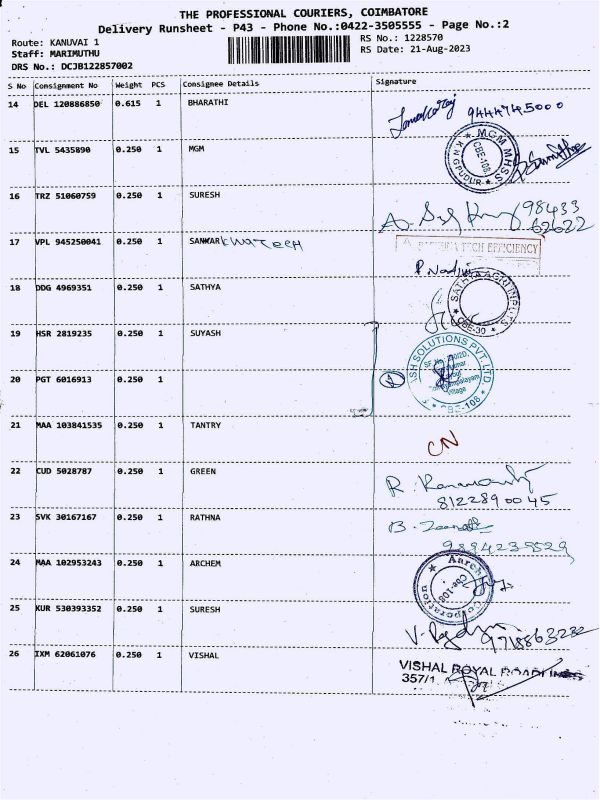 THE PROFESSIONAL COURIERS, COIMBATORE
Delivery Runsheet - P43 - Phone No.:0422-3505555 - Page No.:2
Route: KANUVAI 1
RS No.: 1228570
Staff: MARIMUTHU
RS Date: 21-Aug-2023
DRS No.: DCJB122857002
S No Consignment No Weight PCS Consignee Details Signature
14 DEL 120886850 0.615 1 BHARATHI
9444745000
15 TVL 5435890 0.250 1 MGM
MGM MHSS
CBE-108
16 TRZ 51060759 0.250 1 SURESH
98433
62622
17 VPL 945250041 0.250 1 SANKAR
TECH EFFICIENCY
18 DDG 4969351 0.250 1 SATHYA
SATHYA AGRI INPUTS
CBE-30
19 HSR 2819235 0.250 1 SUYASH
SH SOLUTIONS PVT. LTD
Village
CBE-108
20 PGT 6016913 0.250 1
21 MAA 103841535 0.250 1 TANTRY
CN
22 CUD 5028787 0.250 1 GREEN
8122890045
23 SVK 30167167 0.250 1 RATHNA
24 MAA 102953243 0.250 1 ARCHEM
Cbe-108
Corporation
25 KUR 530393352 0.250 1 SURESH
26 IXM 62061076 0.250 1 VISHAL
VISHAL ROYAL
357/1